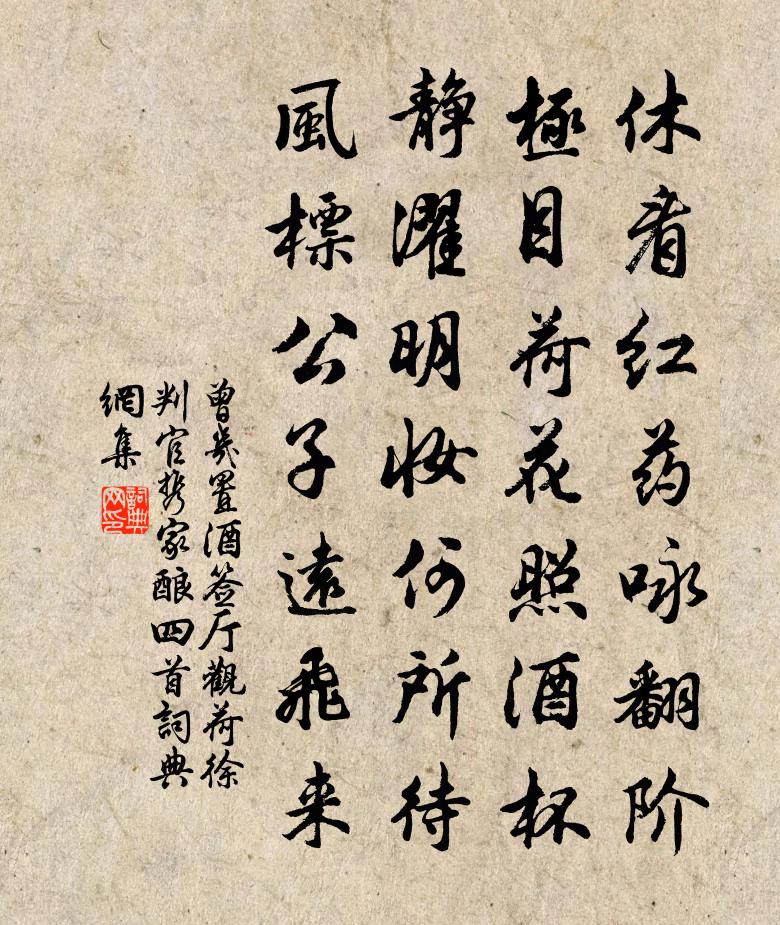 休看红药咏翻阶
極目荷花照酒杯
静濯明妆何所待
風標公子遠飛来
曾幾置酒签厅觀荷徐
判官携家酿四首詞典
網集
詞典网印